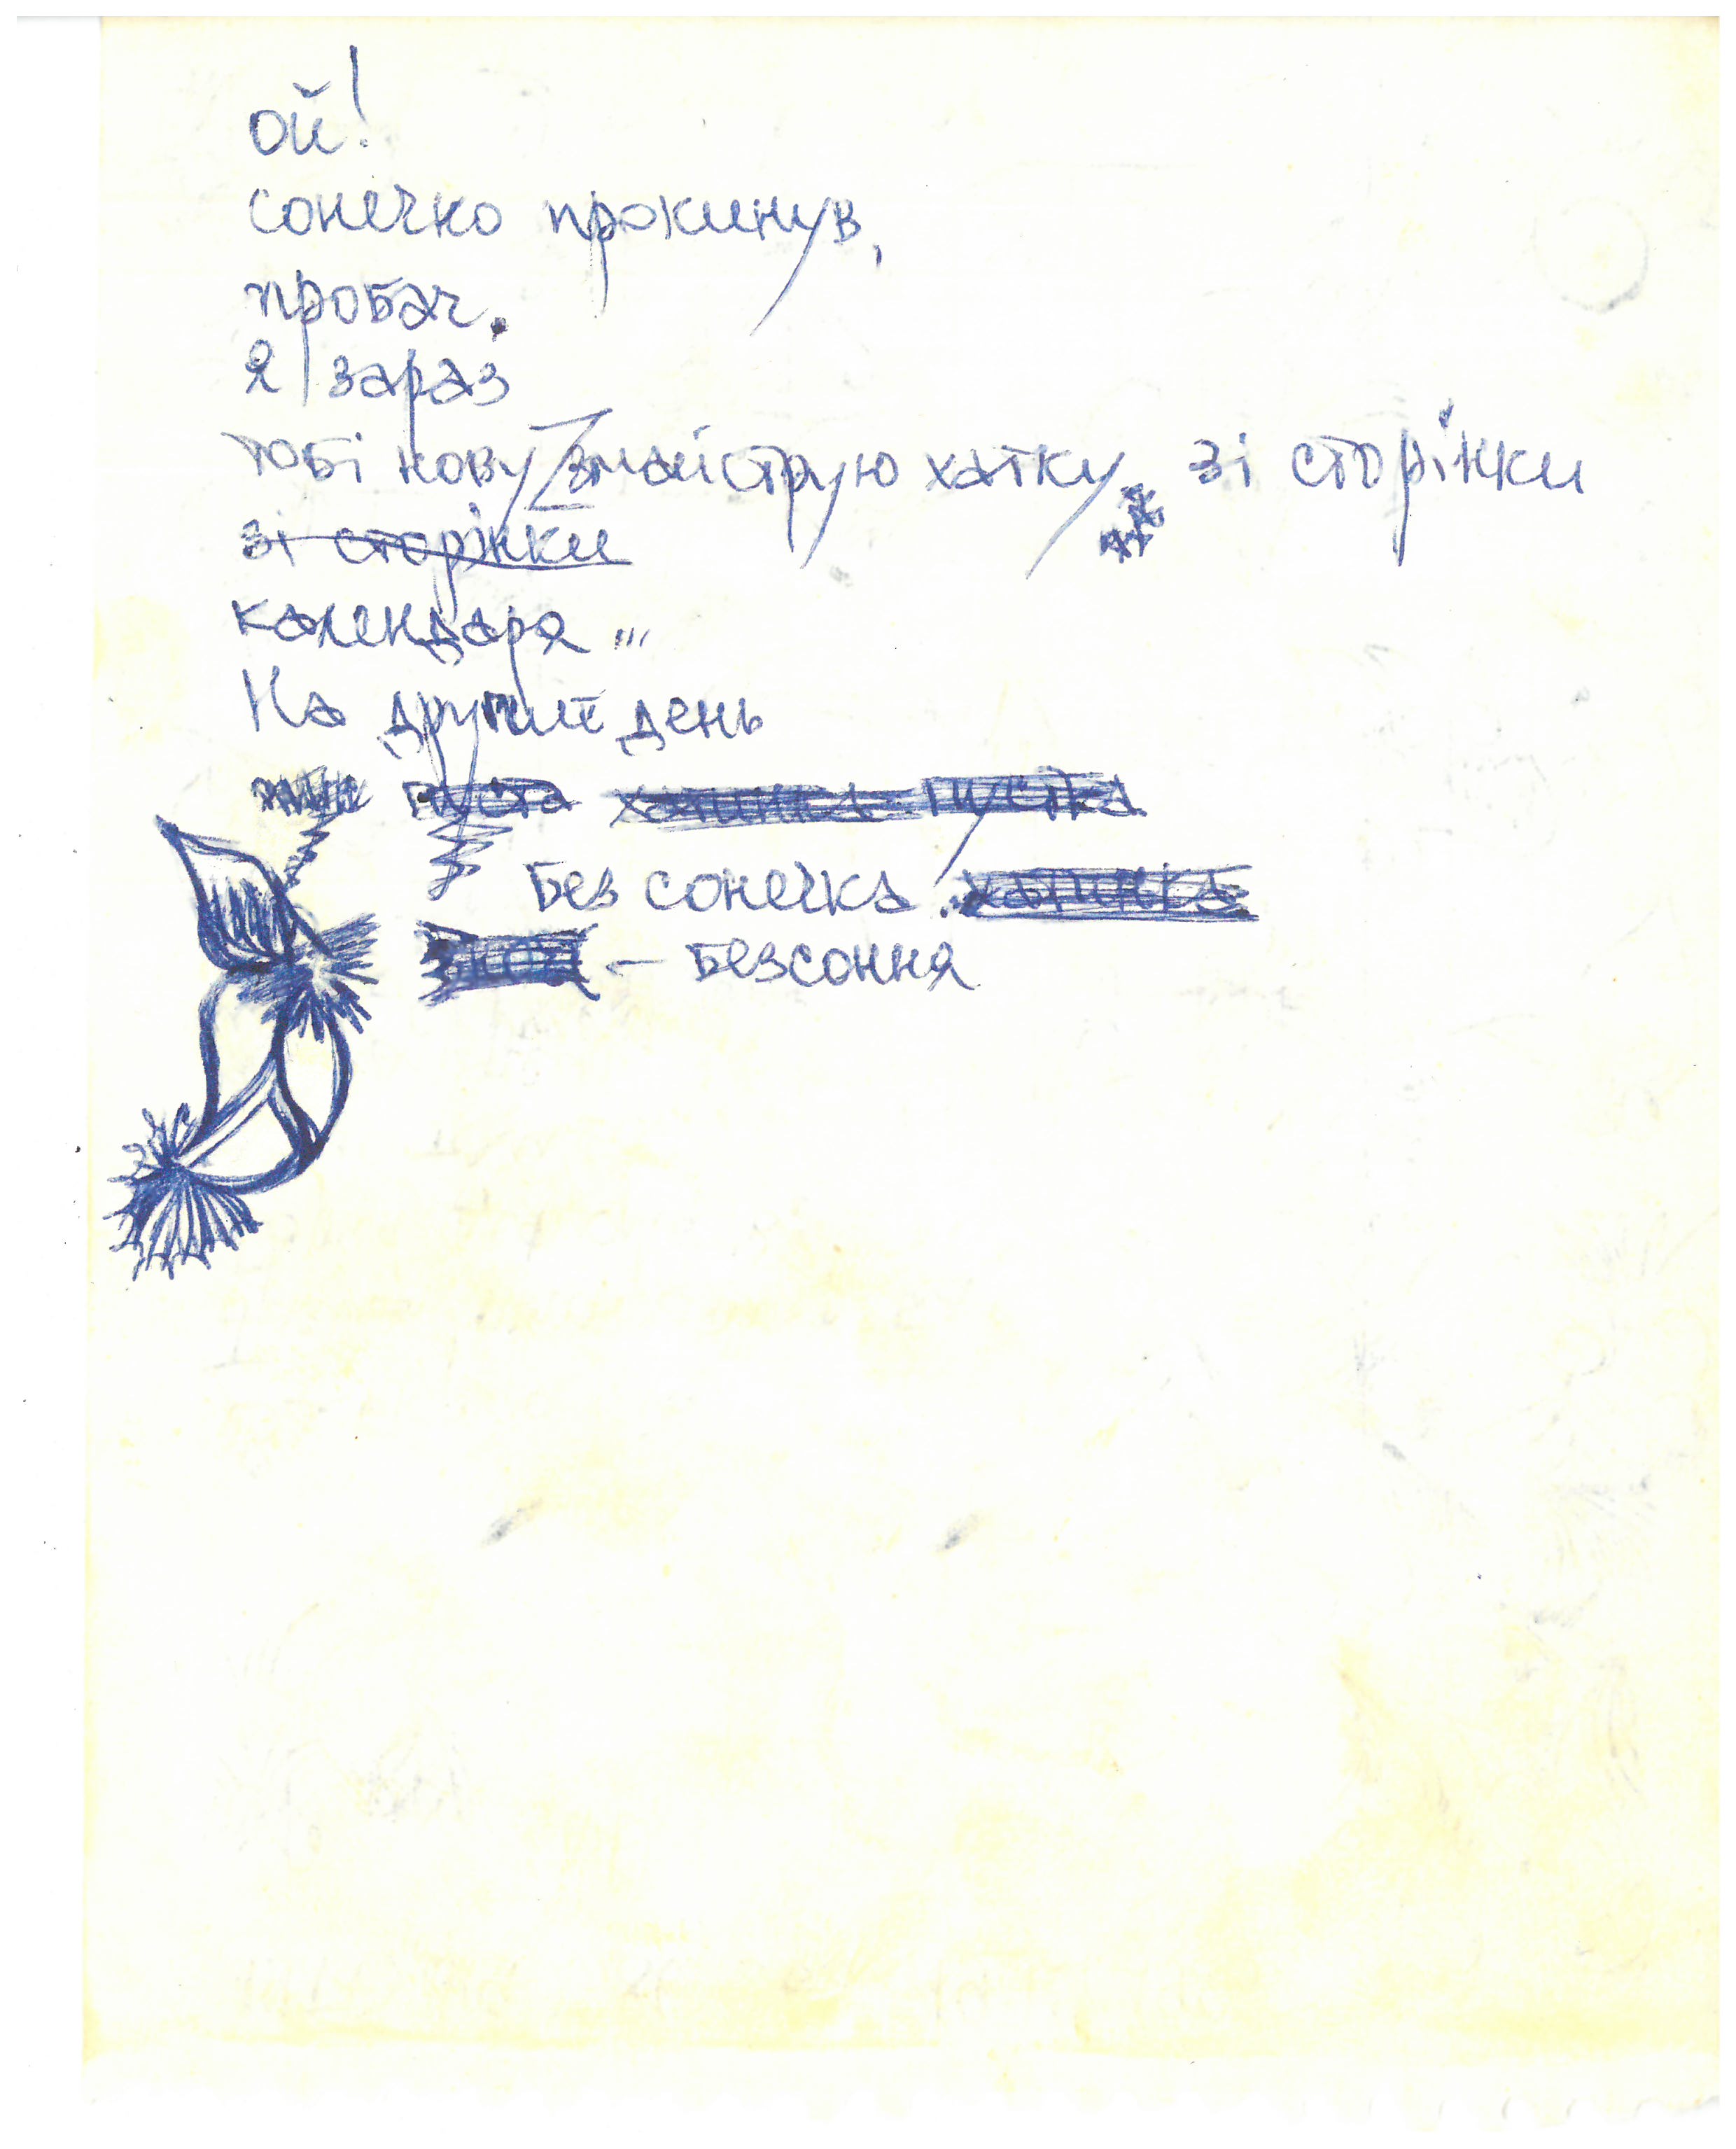 ой!
сонечко прокинув,
пробач.
Я зараз
тобі нову змайструю хатку зі сторінки
зі сторінки
календаря...
На другий день
пуста хатинка пустка
Без сонечка. хатинка
– безсоння